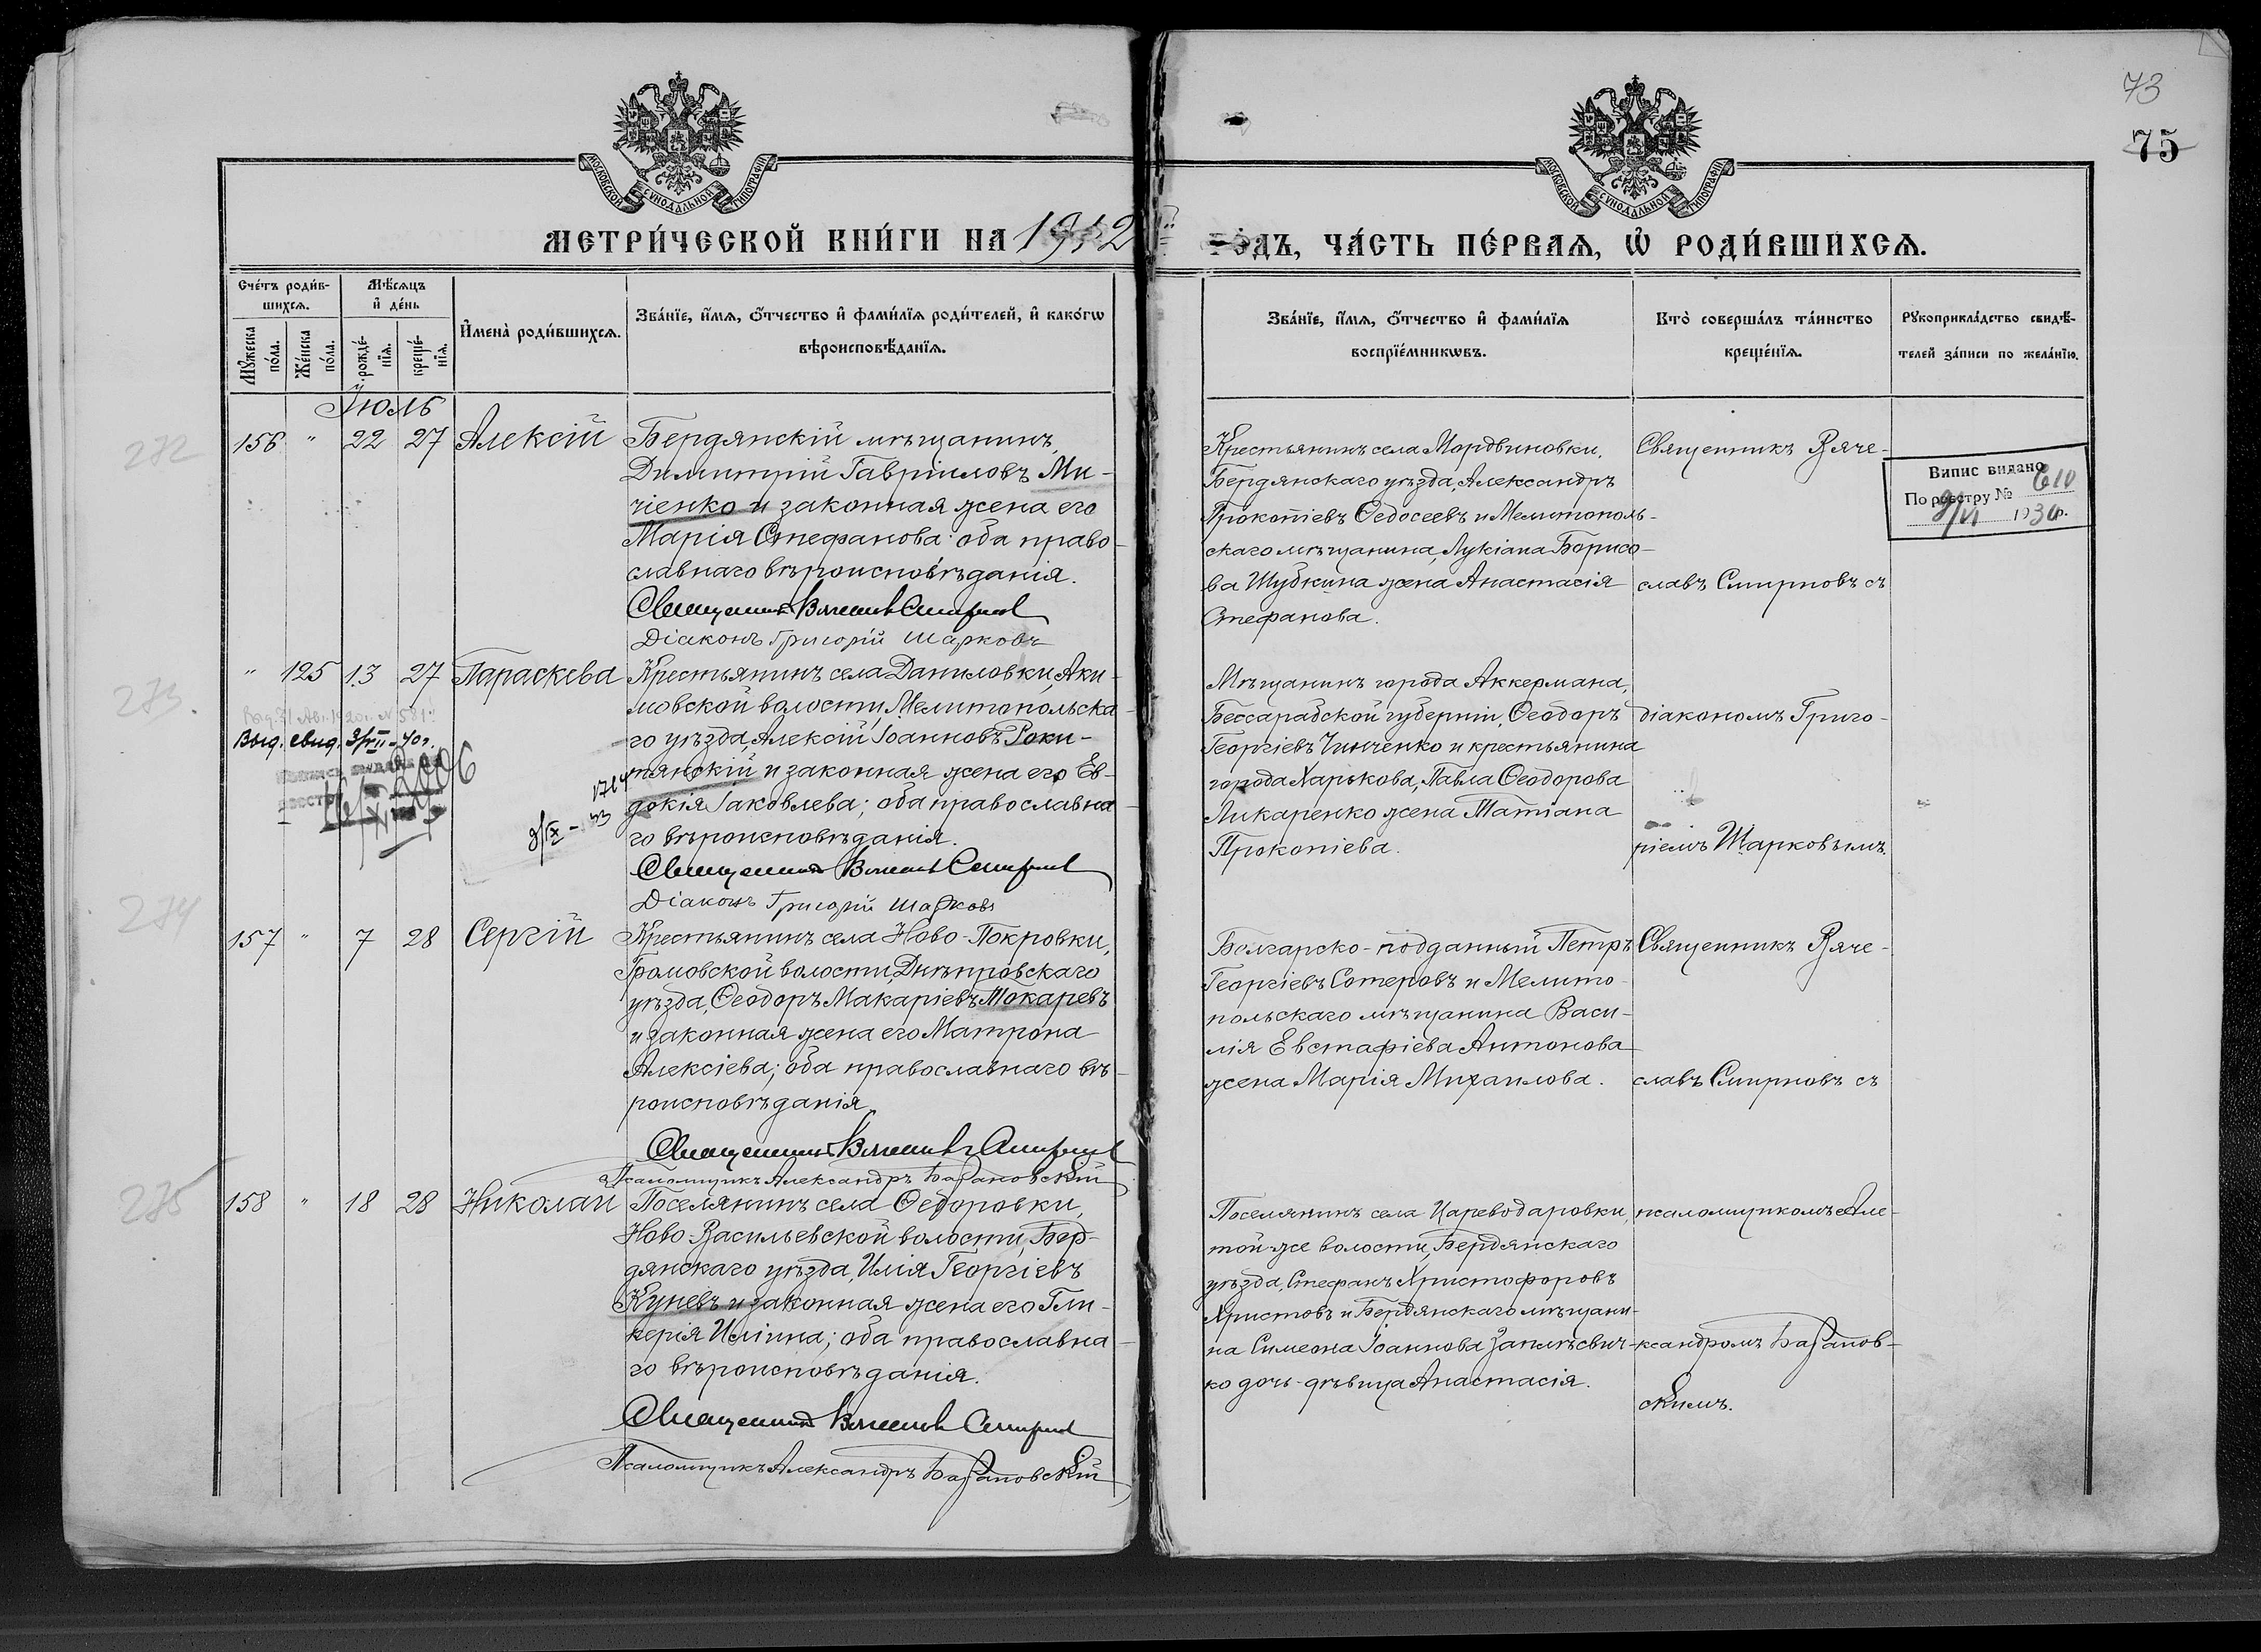 73
75
МОСКОВСКОЙ СѴНОДАЛЬНОЙ ТИПОГРАФІИ
МОСКОВСКОЙ СѴНОДАЛЬНОЙ ТИПОГРАФІИ
МЕТРИ́ЧЕСКОЙ КНИ́ГИ НА 1912
ГОДЪ, ЧА́СТЬ ПЕ́РВАѦ, Ѡ҆ РОДИ́ВШИХСѦ.
Сче́тъ роди́в-
шихсѧ.
Мꙋ́жеска по́ла.
Же́нска по́ла.
Мѣ́сѧцъ
и҆ де́нь
рожде́-
нїѧ.
креще́-
нїѧ.
И҆мена̀ роди́вшихсѧ.
Зва́нїе, и҆́мѧ, ѻ҆́тчество и҆ фами́лїѧ роди́телей, и҆ како́гѡ
вѣроисповѣ́данїѧ.
Зва́нїе, и҆́мѧ, ѻ҆́тчество и҆ фами́лїѧ
воспрїе́мникѡвъ.
Кто̀ соверша́лъ та́инство
креще́нїѧ.
Рꙋкоприкла́дство свидѣ́-
телей за́писи по жела́нїю.
Іюль
272
156 " 22 27 Алексій
Бердянскій мѣщанинъ,
Димитрій Гавріиловъ Ми-
ченко и законная жена его
Марія Стефанова: оба право-
славнаго вѣроисповѣданія.
Священникъ Вячеславъ Смирновъ
Діаконъ Григорій Шарковъ
Крестьянинъ села Мордвиновки,
Бердянскаго уѣзда, Александръ
Прокопіевъ Ѳедосеевъ и Мелитополь-
скаго мѣщанина, Лукіана Борисо-
ва Шубкина жена Анастасія
Стефанова.
Священникъ Вяче-
славъ Смирновъ съ
Випис видано
По реєстру № 610
9/VI 1930р.
273.
" 125 13 27 Параскева
Выд. свид. 3/VII-40г.
9/IX - 33
Крестьянинъ села Даниловки, Аки-
мовской волости, Мелитопольска-
го уѣзда, Алексій Іоанновъ Роки-
тянскій и законная жена его Ев-
докія Іаковлева; оба православна-
го вѣроисповѣданія.
Священникъ Вячеславъ Смирновъ
Діаконъ Григорій Шарковъ
Мѣщанинъ города Аккермана,
Бессарабской губерніи, Ѳеодоръ
Георгіевъ Чинченко и крестьянина
города Харькова, Павла Ѳеодорова
Ликаренко жена Татіана
Прокопіева.
діакономъ Григо-
ріемъ Шарковымъ.
274
157 " 7 28 Сергій
Крестьянинъ села Ново-Покровки,
Громовской волости, Днѣпровскаго
уѣзда, Ѳеодоръ Макаріевъ Токаревъ
и законная жена его Матрона
Алексіева; оба православнаго вѣ-
роисповѣданія.
Священникъ Вячеславъ Смирновъ
Псаломщикъ Александръ Барановскій
Болгарско-подданный Петръ
Георгіевъ Сотеровъ и Мелито-
польскаго мѣщанина Васи-
лія Евстафіева Антонова
жена Марія Михаилова.
Священникъ Вяче-
славъ Смирновъ съ
275
158 " 18 28 Николай
Поселянинъ села Ѳедоровки,
Ново-Васильевской волости, Бер-
дянскаго уѣзда, Илія Георгіевъ
Куневъ и законная жена его Гли-
керія Иліина; оба православна-
го вѣроисповѣданія.
Священникъ Вячеславъ Смирновъ
Псаломщикъ Александръ Барановскій
Поселянинъ села Цареводаровки,
той-же волости, Бердянскаго
уѣзда, Стефанъ Христофоровъ
Христовъ и Бердянскаго мѣщани-
на Симеона Іоаннова Заплѣсвич-
ко дочь-дѣвица Анастасія.
псаломщикомъ Але-
ксандромъ Баранов-
скимъ.